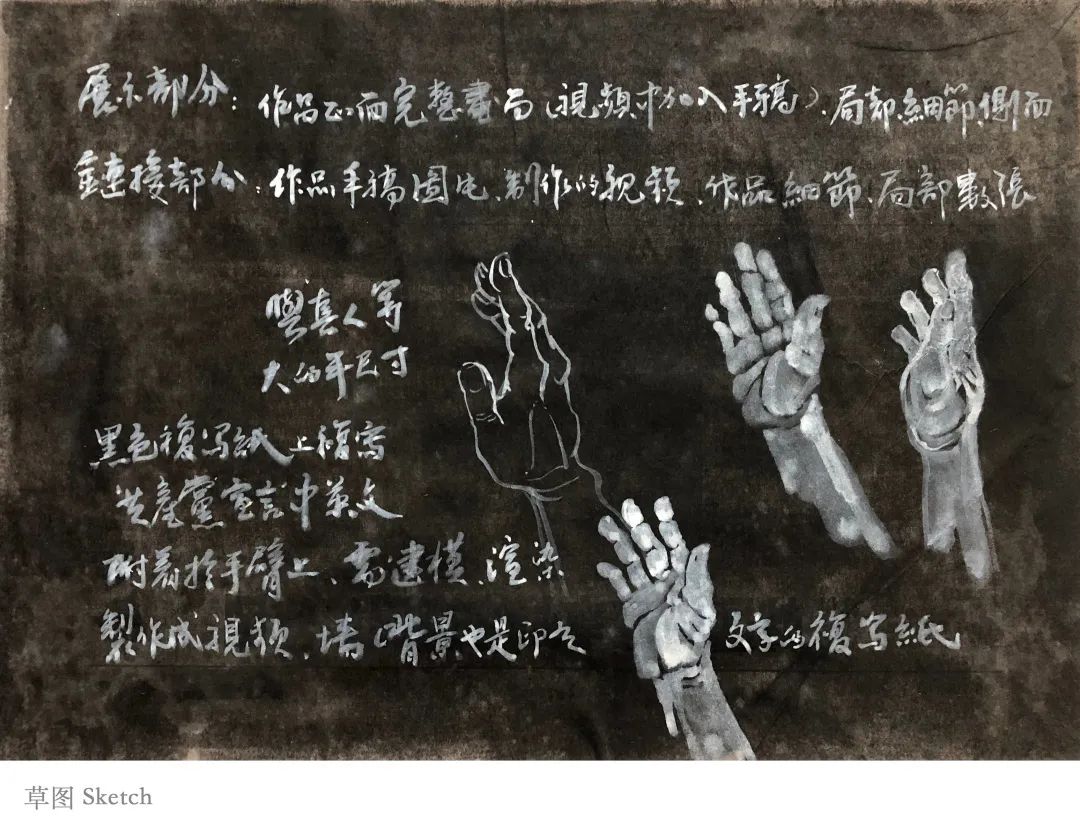 展示部分：作品正面完整畫面（視頻中加入手稿）、局部、細節、側面
鏈接部分：作品手稿圖片、制作的視頻、作品細節、局部數張
與真人等
大的手尺寸
黑色複写紙上複寫
共產黨宣言中英文
附着於手臂上、需建模、渲染
製作成視頻、墻（背景也是印有 文字的複写紙
草图 Sketch